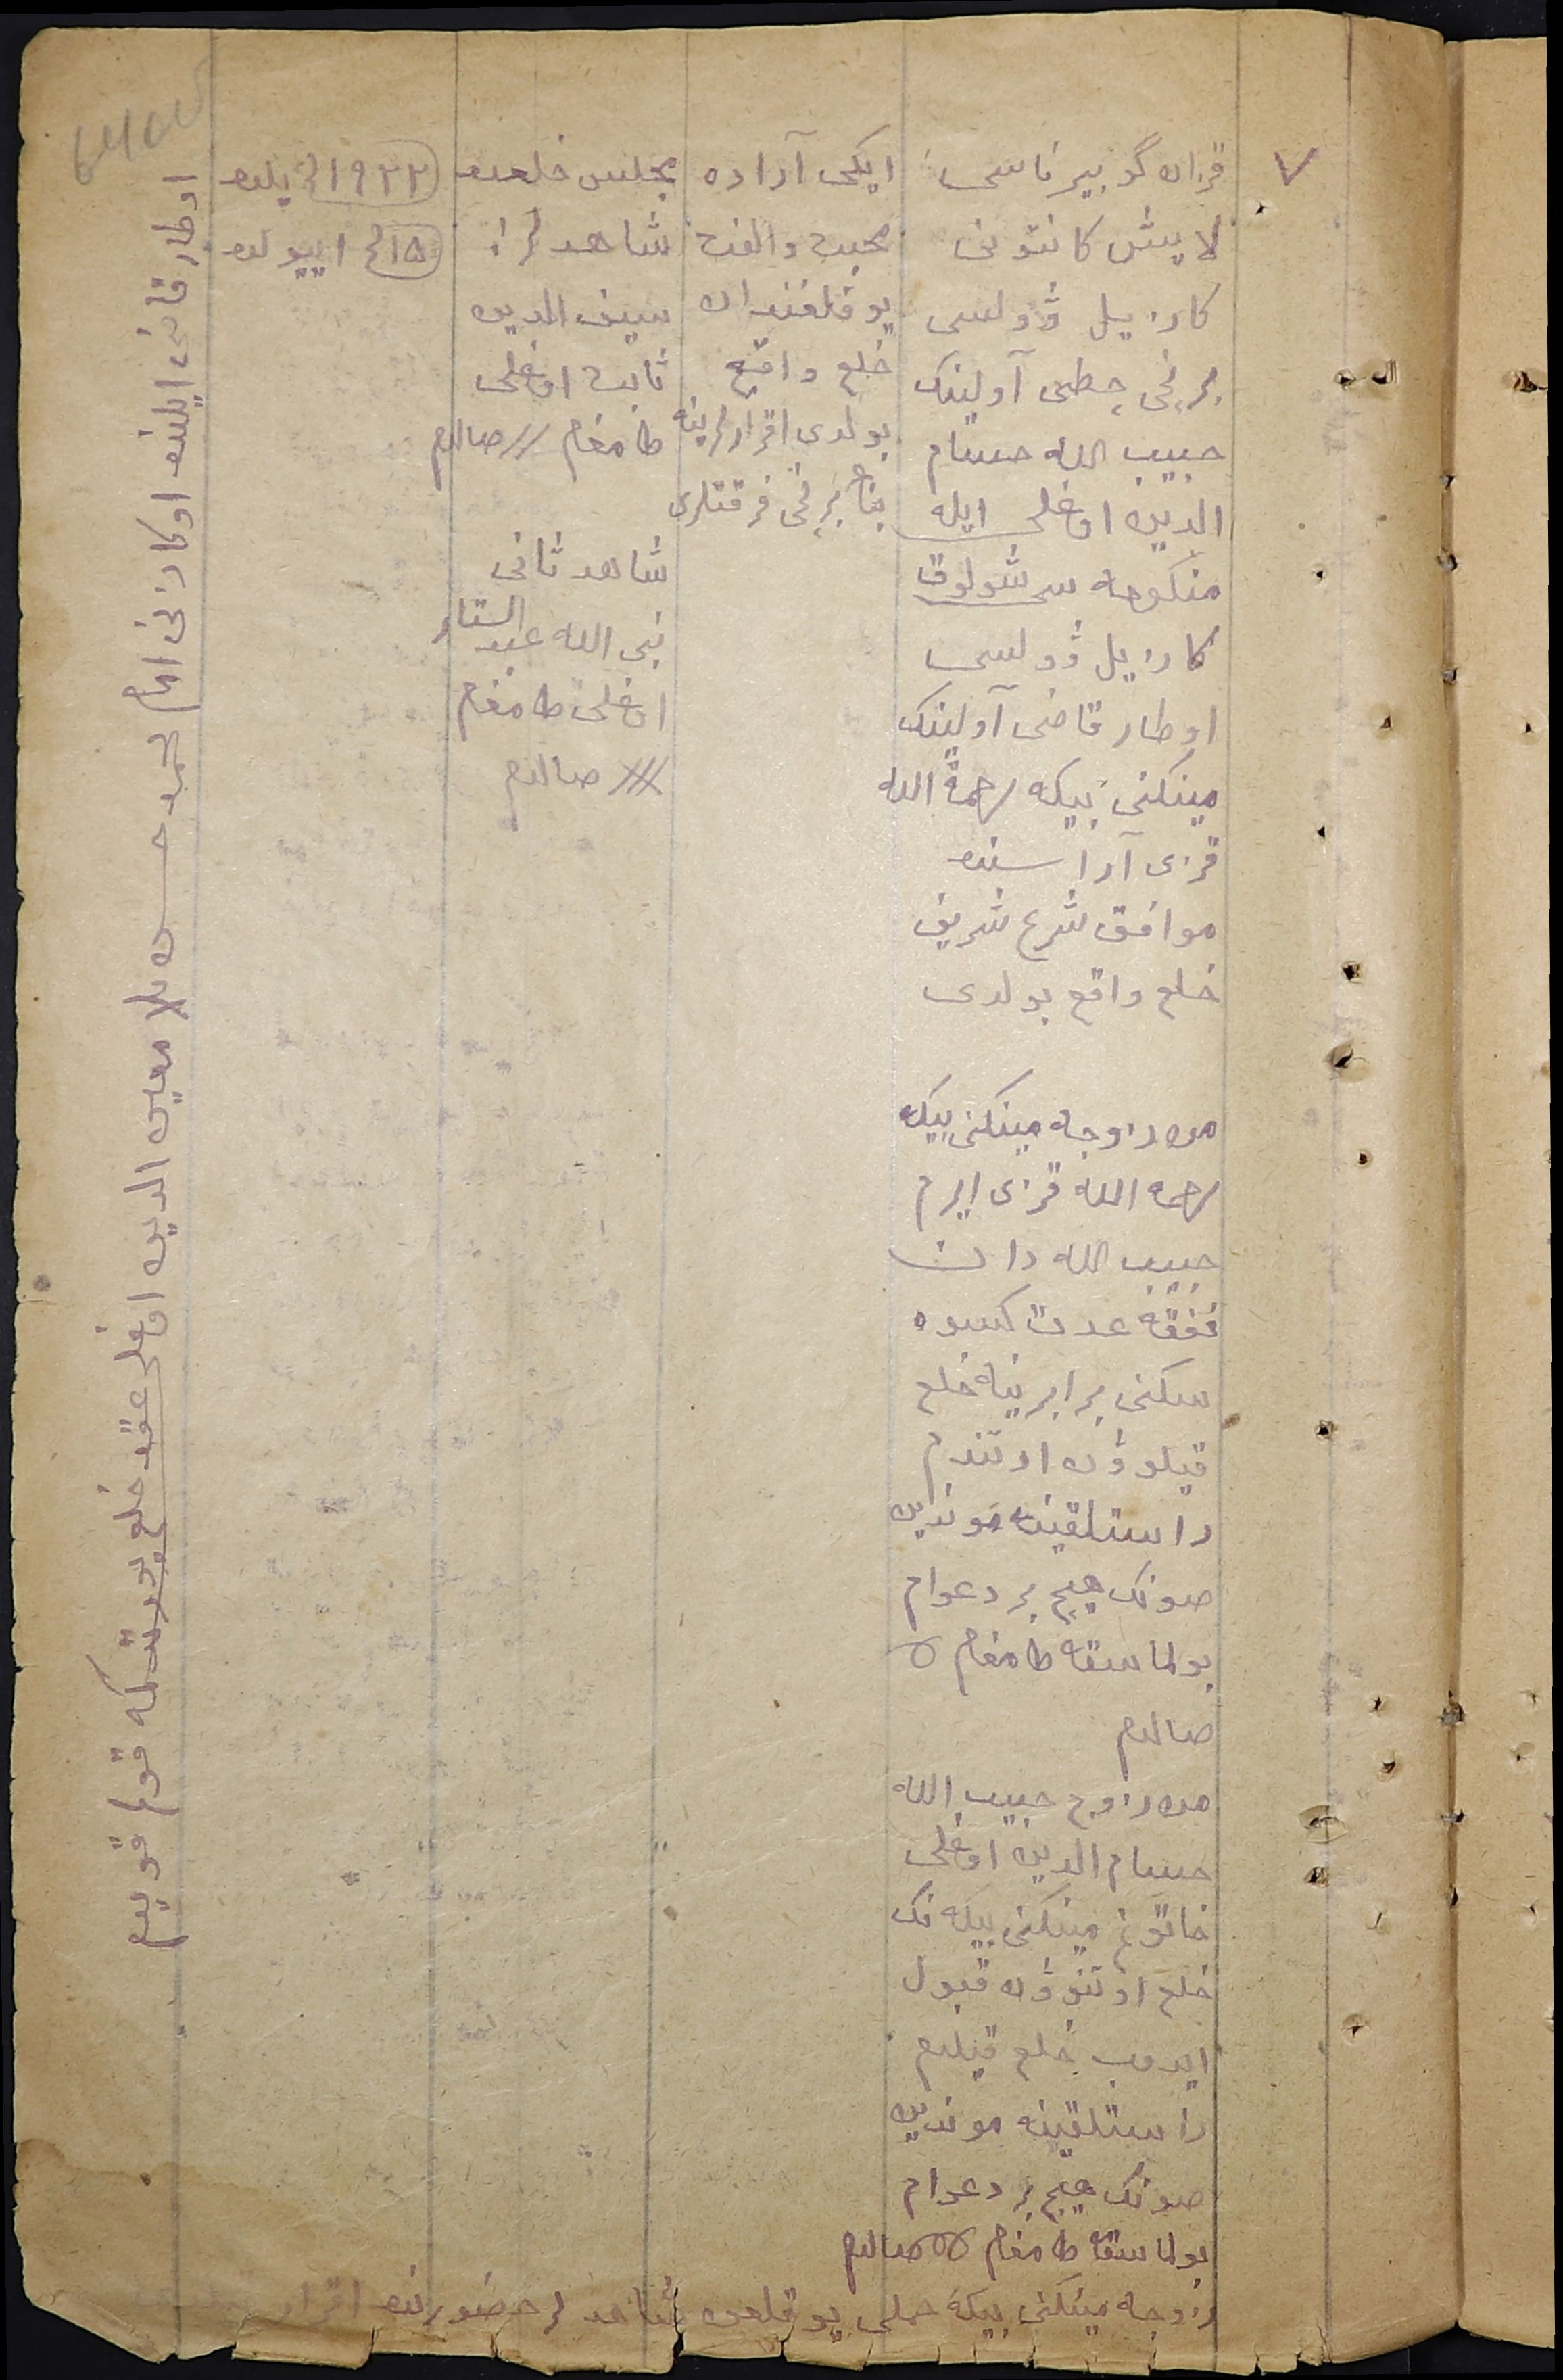 ٧
قزان گوبیرناسی
لایش کانتونی
کازیل ۋولسی
برنچی چطی آولینک
حبیب الله حسام
الدین اوغلی ایله
منکوحه سی شولوق
کازیل ۋولسی
اوطار قاضی آولینک
مینکنی بیکه رحمة الله
قزی آراسنده
موافق شرع شریف
خلع واقع بولدی
من زوجه مینکنی بیکه
رحمة الله قزی ایرم
حبیب الله دان
نفقه عدت کسوه
سکنی برابرینه خلع
قیلوۋن اوتندم
راستلقینه موندین
صونک هیچ بر دعوام
بولماسقه طامغام
صالدم
من زوج حبیب الله
حسام الدین اوغلی
خاتونم مینکنی بیکه نک
خلع اوتنوۋن قبول
ایدوب خلع قیلدم
راستلقینه موندین
صونک هیچ بر دعوام
بولماسقه طامغام صالدم
زوجه مینکنی بیکه حملی یوقلغن شاهدلر حضورنده اقرار
ایکی آراده
محبت والفت
یوقلغندان
خلع واقع
بولدی اقرارلرینه
بناء برنچی فرقتلری
مجلس خلعده
شاهدلر:
سیف الدین
ثابت اوغلی
طامغام // صالدم
شاهد ثانی
نبی الله عبد الستار
اوغلی طامغام
صالدم
١٩٢٢ نچی یلده
١٥ نچی اییولده
اوطار قاضی اوکازنی امام محمد حسن ملا معین الدین اوغلی عقد خلع یورتمکه قولم قویدم